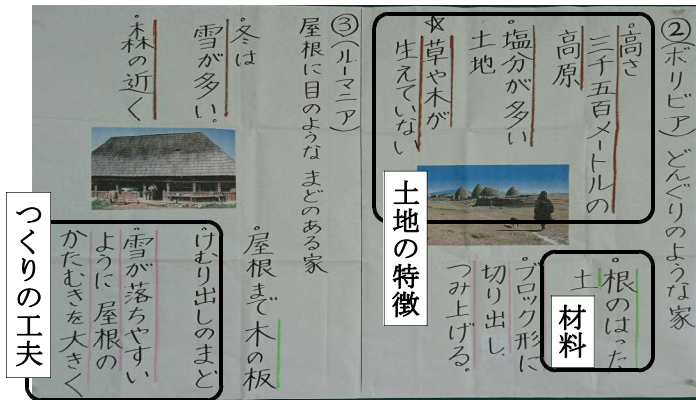 ②(ボリビア)どんぐりのような家
。高さ
三千五百メートルの
高原
。塩分が多い
土地
☆草や木が
生えていない
土地の特徴
。根のはった
土
材料
。ブロック形に
切り出し、
つみ上げる。
③(ルーマニア)
屋根に目のような まどのある家
。冬は
雪が多い。
。森の近く
。屋根まで木の板
。けむり出しのまど
。雪が落ちやすい
ように 屋根の
かたむきを大きく
つくりの工夫